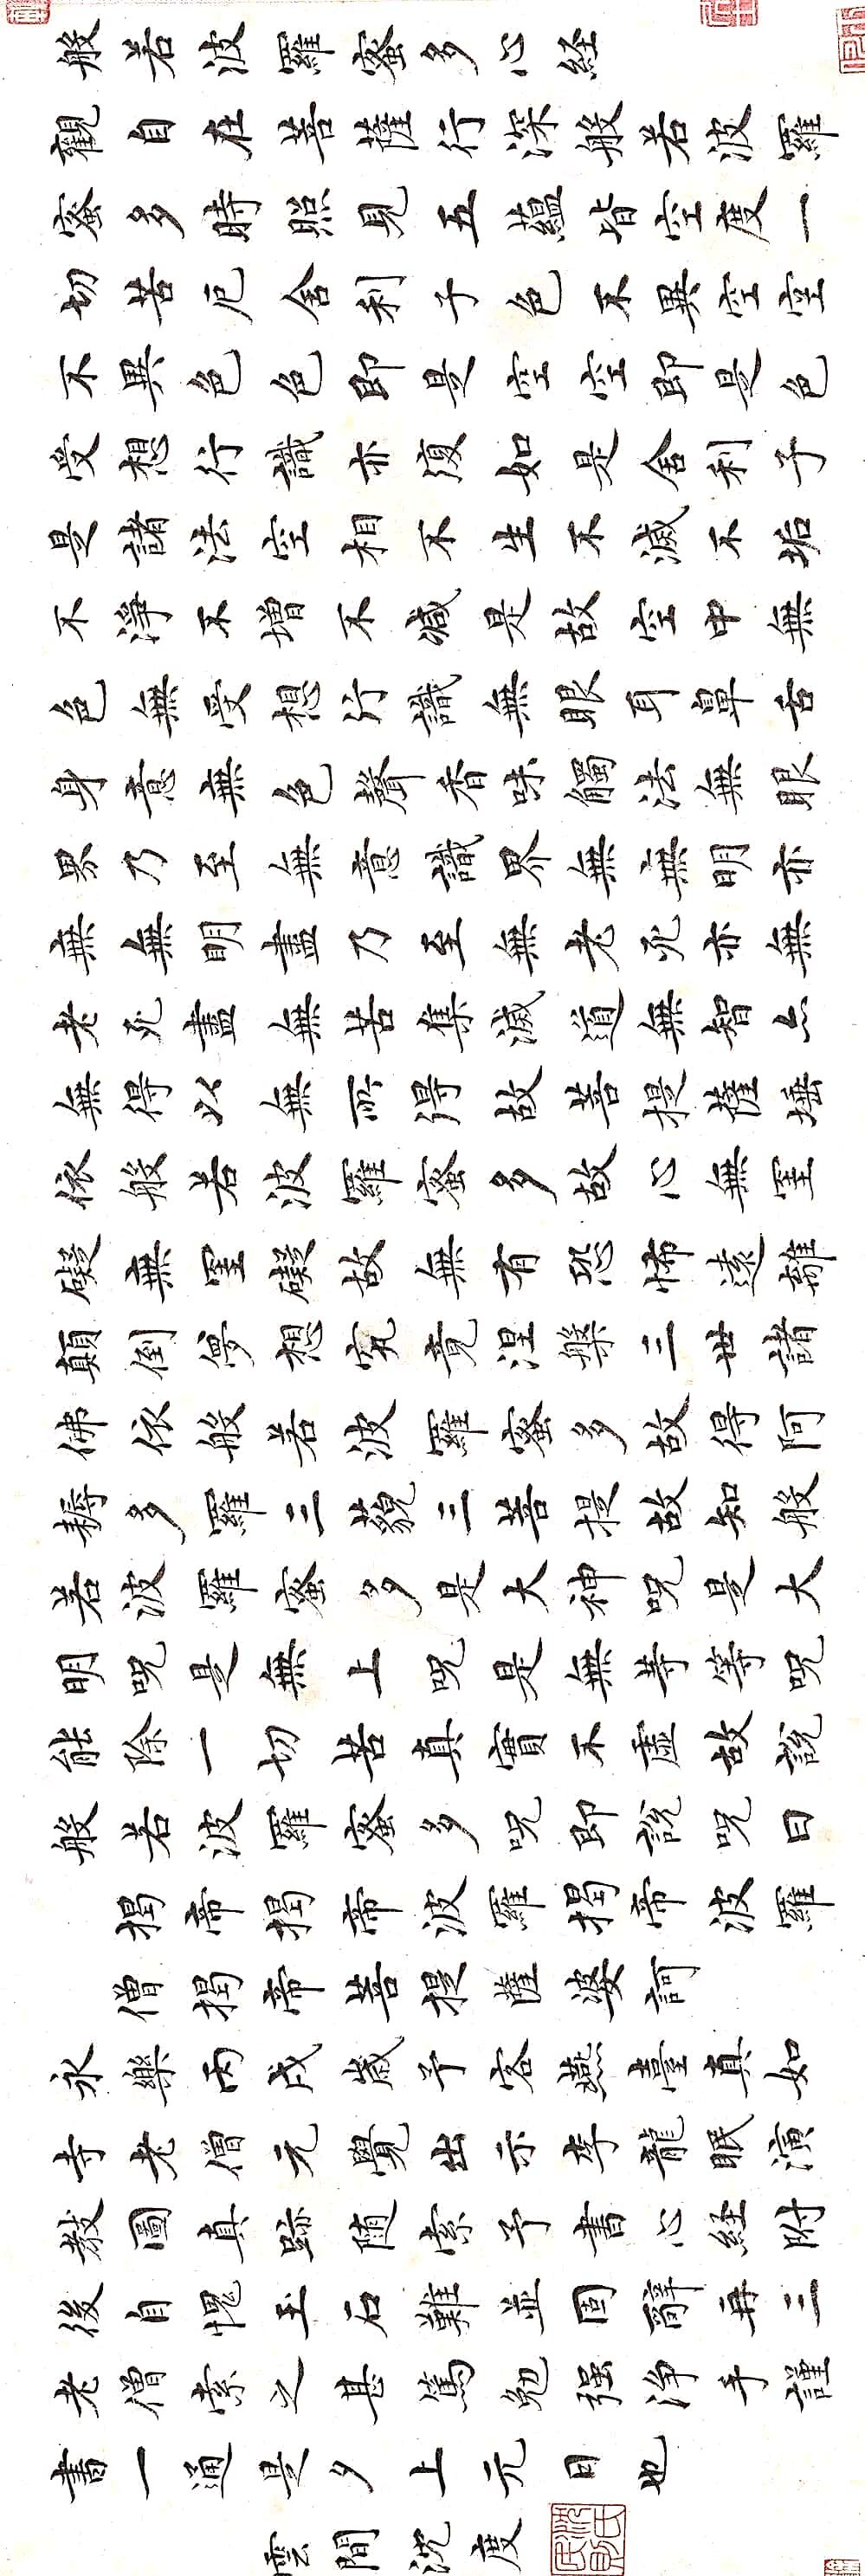 般若波羅蜜多心経
觀自在菩薩行深般若波羅
蜜多時照見五蘊皆空度一
切苦厄舍利子色不異空空
不異色色即是空空即是色
受想行識亦復如是舍利子
是諸法空相不生不滅不垢
不淨不增不減是故空中無
色無受想行識無眼耳鼻舌
身意無色聲香味觸法無眼
界乃至無意識界無無明亦
無無明盡乃至無老死亦無
老死盡無苦集滅道無智亦
無得以無所得故菩提薩埵
依般若波羅蜜多故心無罣
礙無罣礙故無有恐怖遠離
顛倒夢想究竟涅槃三世諸
佛依般若波羅蜜多故得阿
耨多羅三藐三菩提故知般
若波羅蜜多是大神咒是大
明咒是無上咒是無等等咒
能除一切苦真實不虛故說
般若波羅蜜多咒即說咒曰
揭帝揭帝波羅揭帝波羅
僧揭帝菩提薩婆訶
永樂丙戌歲予客燕臺真如
寺老僧元覺出示李龍眠演
教圖真跡隨索予書心経附
後自愧玉石難並固辭再三
老僧索之甚篤勉强淨手謹
書一通是夕上元日也
雲間沈度